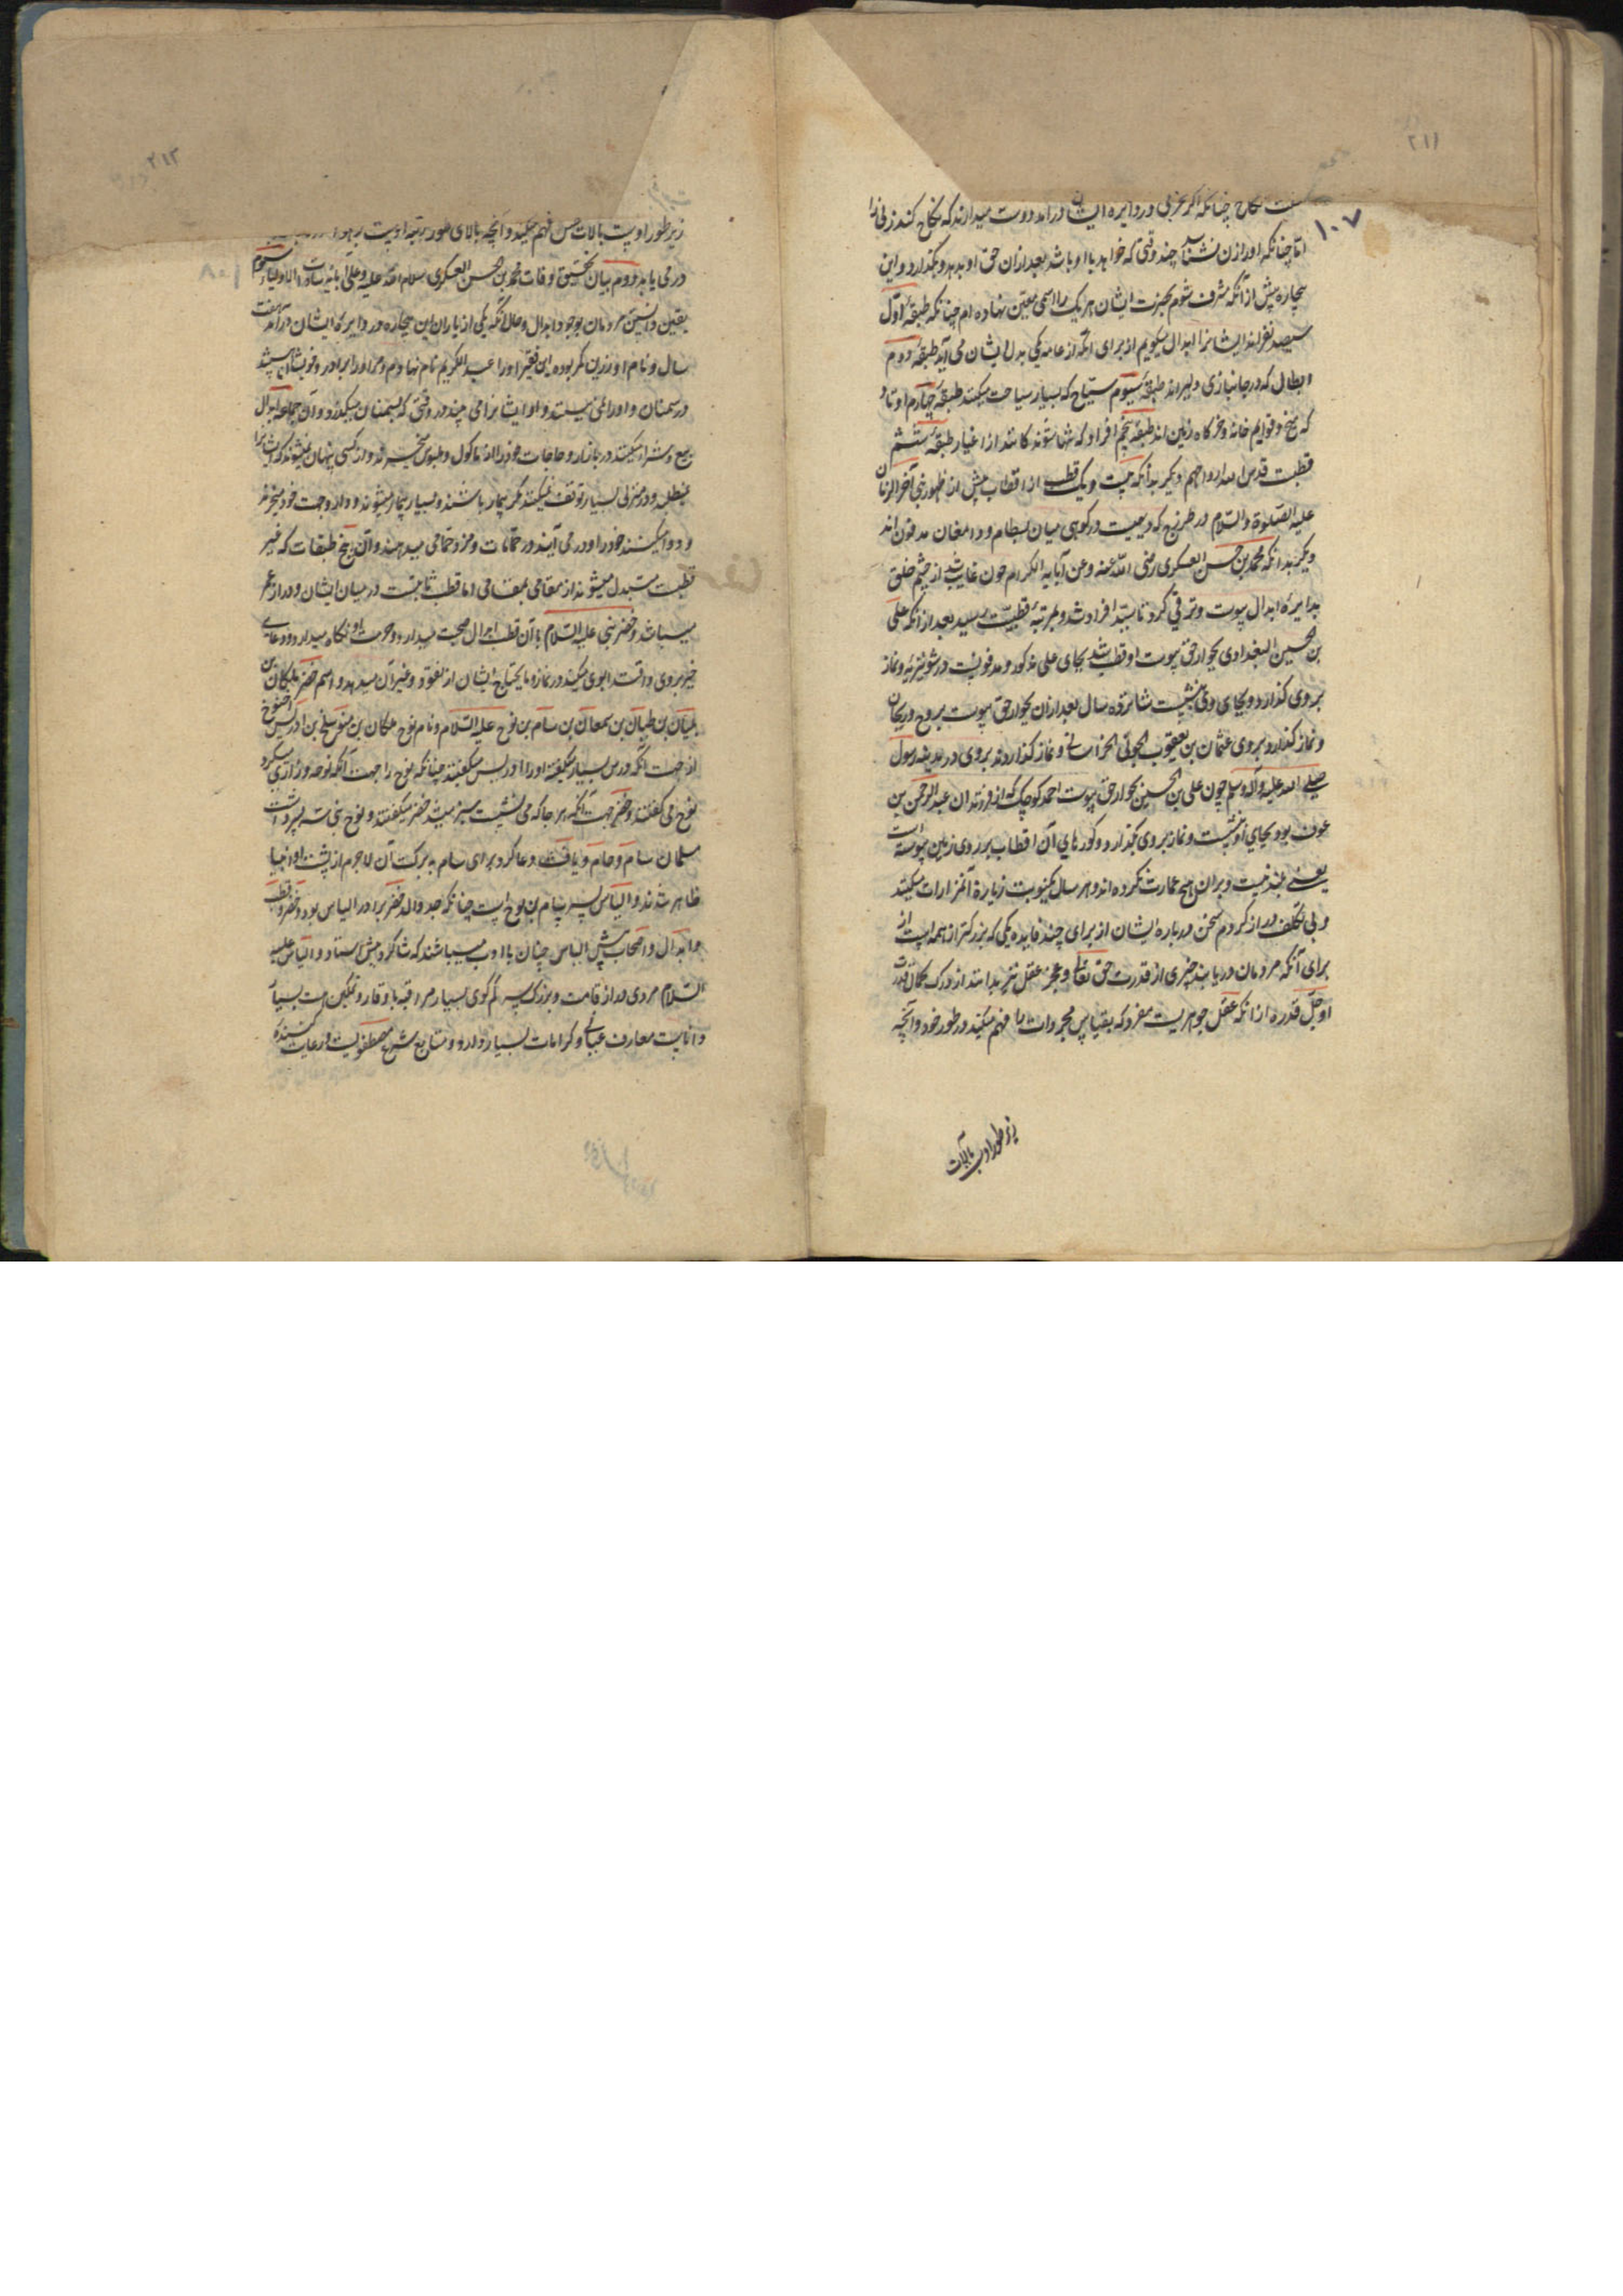 ۲۱۱
۱۰۷
نکاح چنانکه اگر عزبی در دایره ایشان درآمد دوست میدارند که نکاح کند زنی را
اما چنانکه او را زن نشناسد چند وقتی که خواهد با او باشد بعد از آن حق او بدهد و بگذارد و این
بیچاره پیش از آنکه مشرف شوم بحضرت ایشان هر یک را اسمی معین نهاده ام چنانکه طبقهٔ اول
سیصد نفراند ایشانرا ابدال میگویم از برای آنکه از عامه یکی بدل ایشان می آید طبقهٔ دوم
ابطال که در جانبازی دلیراند طبقهٔ سیوم سیاح که بسیار سیاحت میکنند طبقهٔ چهارم اوتاد
که میخ و قوایم خانه و خرگاه زمین اند طبقهٔ پنجم افراد که تنها شوند کانند از اغیار طبقهٔ ششم
قطبست قدس الله ارواحهم دیگر بدانکه بیست و یک قطب از اقطاب پیش از ظهور نبی آخر الزمان
علیه الصلوة والسلام در طرزج که دیهیست در کوهی میان بسطام و دامغان مدفون اند
دیگر بدانکه محمد بن حسن العسکری رضی الله عنه و عن آبایه الکرام چون غایب شد از چشم خلق
بدایرهٔ ابدال پیوست و ترقی کرد تا سید افراد شد و بمرتبهٔ قطبیت رسید بعد از آنکه علی
بن حسین البغدادی بجوار حق پیوست او قطب شد بجای علی مذکور و مدفونست در شونیزیه و نماز
بر وی گذارد و بجای وی بنشست شانزده سال بعد از آن بجوار حق پیوست بروح و ریحان
و نماز گذارد بر وی عثمان بن یعقوب الجوینی الخراسانی و نماز گذاردند بر وی در مدینه رسول
صلی الله علیه و آله وسلم چون علی بن الحسین بجوار حق پیوست احمد کوچک که از فرزندان عبد الرحمن بن
عوف بود بجای او بنشست و نماز بر وی بگذارد و گورهای آن اقطاب بر روی زمین پیوسته است
یعنی بلند نیست و بران هیچ عمارت نکرده اند و هر سال یکنوبت زیارة آن مزارات میکنند
و بی تکلف دراز کردم سخن درباره ایشان از برای چند فایده یکی که بزرگتر از همه است از
برای آنکه مردمان دریابند چیزی از قدرت حق تعالی و عجز عقل نیز بدانند از درک کمال قدرت
او جل قدره از آنکه عقل جوهریست مفرد که بقیاس مجردات را فهم میکند در طور خود و آنچه
زیر طور اوست بآلات
۲۱۲
زیر طور اوست بآلات حس فهم میکند و آنچه بالای طور رتبه اوست
در می یابد دوم بیان تحقیق وفات محمد بن حسن العسکری سلام الله علیه و علی آبائه سادات الاولیاء سیوم
یقین دانستن مردمان بوجود ابدال و حال آنکه یکی از یاران این بیچاره در دایرهٔ ایشان درآمد هفت
سال و نام او زرین کمر بوده این فقیر او را عبد الکریم نام نهادم و مر او را برادر و خویشان هستند
در سمنان و او را نمی بینند و او ایشانرا می بیند در وقتی که بسمنان میگذرد و آن جماعه ابدال
بیع و شراء میکنند در بازار و حاجات خود را از ماکول و ملبوس میخرند و از کسی پنهان نمیشوند که ایشانرا
بطلبد و در منزلی بسیار توقف نمیکنند مگر بیمار باشند و بسیار بیمار میشوند و دارو جهت خود میخرند
و دوا میکنند خود را و در می آیند در حمامات و مزد حمامی میدهند و آن پنج طبقات که غیر
قطبست متبدل میشوند از مقامی بمقامی اما قطب ثابتست در میان ایشان و دراز عمر
میباشد و خضر نبی علیه السلام با آن قطب ابدال صحبت میدارد و حرمت او نگاه میدارد و دعای
خیر بر وی و اقتدا بوی میکند در نماز و ما یحتاج ایشان از نفقه و غیر آن میدهد و اسم خضر بلیکان بن
بلیان بن طیبان بن سمعان بن سام بن نوح علیه السلام و نام نوح ملکان بن متوسلخ بن ادریس اخنوخ
از جهت آنکه درس بسیار میگفته او را ادریس میگفتند چنانکه نوح را جهت آنکه نوحه و زاری میکرد
نوح می گفتند و خضر جهت آنکه هر جا که می نشست سبز میشد خضر میگفتند و نوح نبی سه پسر داشت
مسلمان سام و حام و یافث و دعا کرد برای سام به برکت آن لاجرم از پشت او انبیا
ظاهر شدند و الیاس پسر سام بن نوح است چنانکه جد والد خضر برادر الیاس بود و خضر و قطب
و ابدال و اصحاب پیش الیاس چنان با ادب میباشند که شاگرد پیش استاد و الیاس علیه
السلام مردی دراز قامت و بزرگ سر کم گوی بسیار مراقبه با وقار و تمکین است بسیار
دانایست معارف غیبات و کرامات بسیار دارد و متابع شرع مصطفویست و رعایت کننده